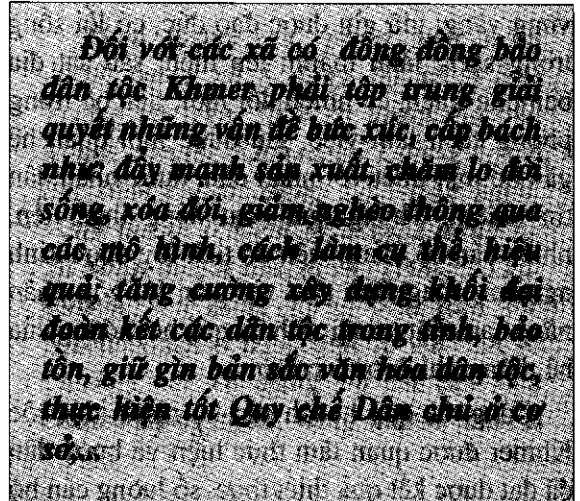 Đối với các xã có đông đồng bào
dân tộc Khmer phải tập trung giải
quyết những vấn đề bức xúc, cấp bách
như: đẩy mạnh sản xuất, chăm lo đời
sống, xóa đói, giảm nghèo thông qua
các mô hình, cách làm cụ thể, hiệu
quả; tăng cường xây dựng khối đại
đoàn kết các dân tộc trong tỉnh, bảo
tồn, giữ gìn bản sắc văn hóa dân tộc,
thực hiện tốt Quy chế Dân chủ ở cơ
sở,...